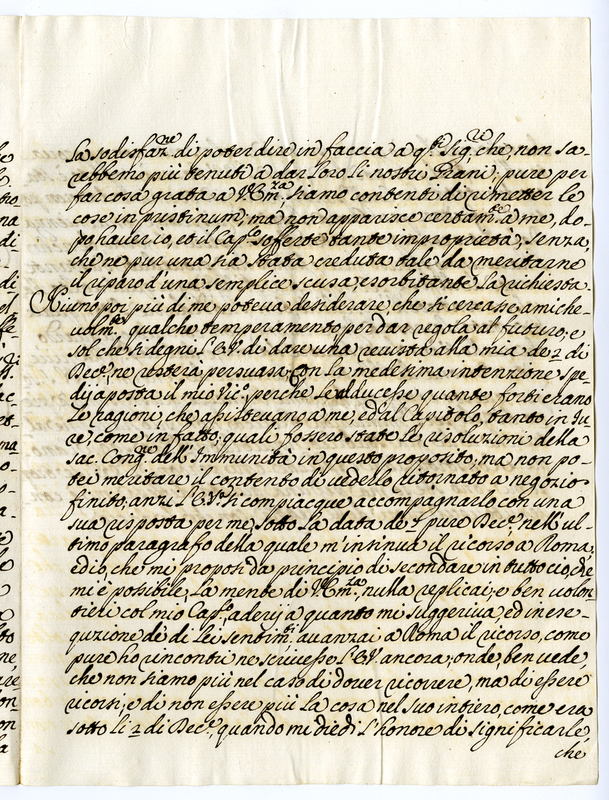 la sodisfaz.ne di poter dire in faccia a q.ti Sig.ri che, non sa-
rebbemo più tenuti à dar Loro li nostri Grani; pure per
far cosa grata a V. Em.za siamo contenti di rimetter le
cose in pristinum; ma non apparisce certam.te à me, do-
po haver io, et il Cap.o sofferte tante improprietà, senza,
che ne pur una sia stata creduta tale da meritarne
il riparo d'una semplice scusa, esorbitante la richiesta.
Niuno poi più di me poteva desiderare, che si cercasse amiche-
volm.te qualche temperamento per dar regola al futuro, e
sol che si degni l'E.V. di dare una revista alla mia de 2 di
Dec.e, ne resterà persuasa; Con la medesima intenzione spe-
dij aposta il mio Vic.o, perche le adducesse quante forti erano
le ragioni, che assistevano à me, ed al Capitolo, tanto in Ju-
re, come in fatto; quali fossero state le risoluzioni della
sac. Cong.ne dell'Immunità in questo proposito, ma non po-
tei meritare il contento di vederlo ritornato a negozio
finito; anzi l'E.V. si compiacque accompagnarlo con una
sua risposta per me, sotto la data de pure Dec.e, nell'ul-
timo paragrafo della quale m'insinuà il ricorso a Roma;
ed io, che mi proposi da principio di secondare in tutto ciò, che
mi è possibile, la mente di V. Em.za, nulla replicai, e ben volon-
tieri col mio Cap.o aderij a quanto mi suggeriva, ed in ese-
quzione de di Lei sentim.ti avanzai a Roma il ricorso, come
pure ho rincontri ne scrivesse l'E.V. ancora; onde, ben vede,
che non siamo più nel caso di dover ricorrere, ma di essere
ricorsi; e di non essere più la cosa nel suo intiero, come era
sotto li 2 di Dec.e, quando mi diedi l'honore di significarle,
che